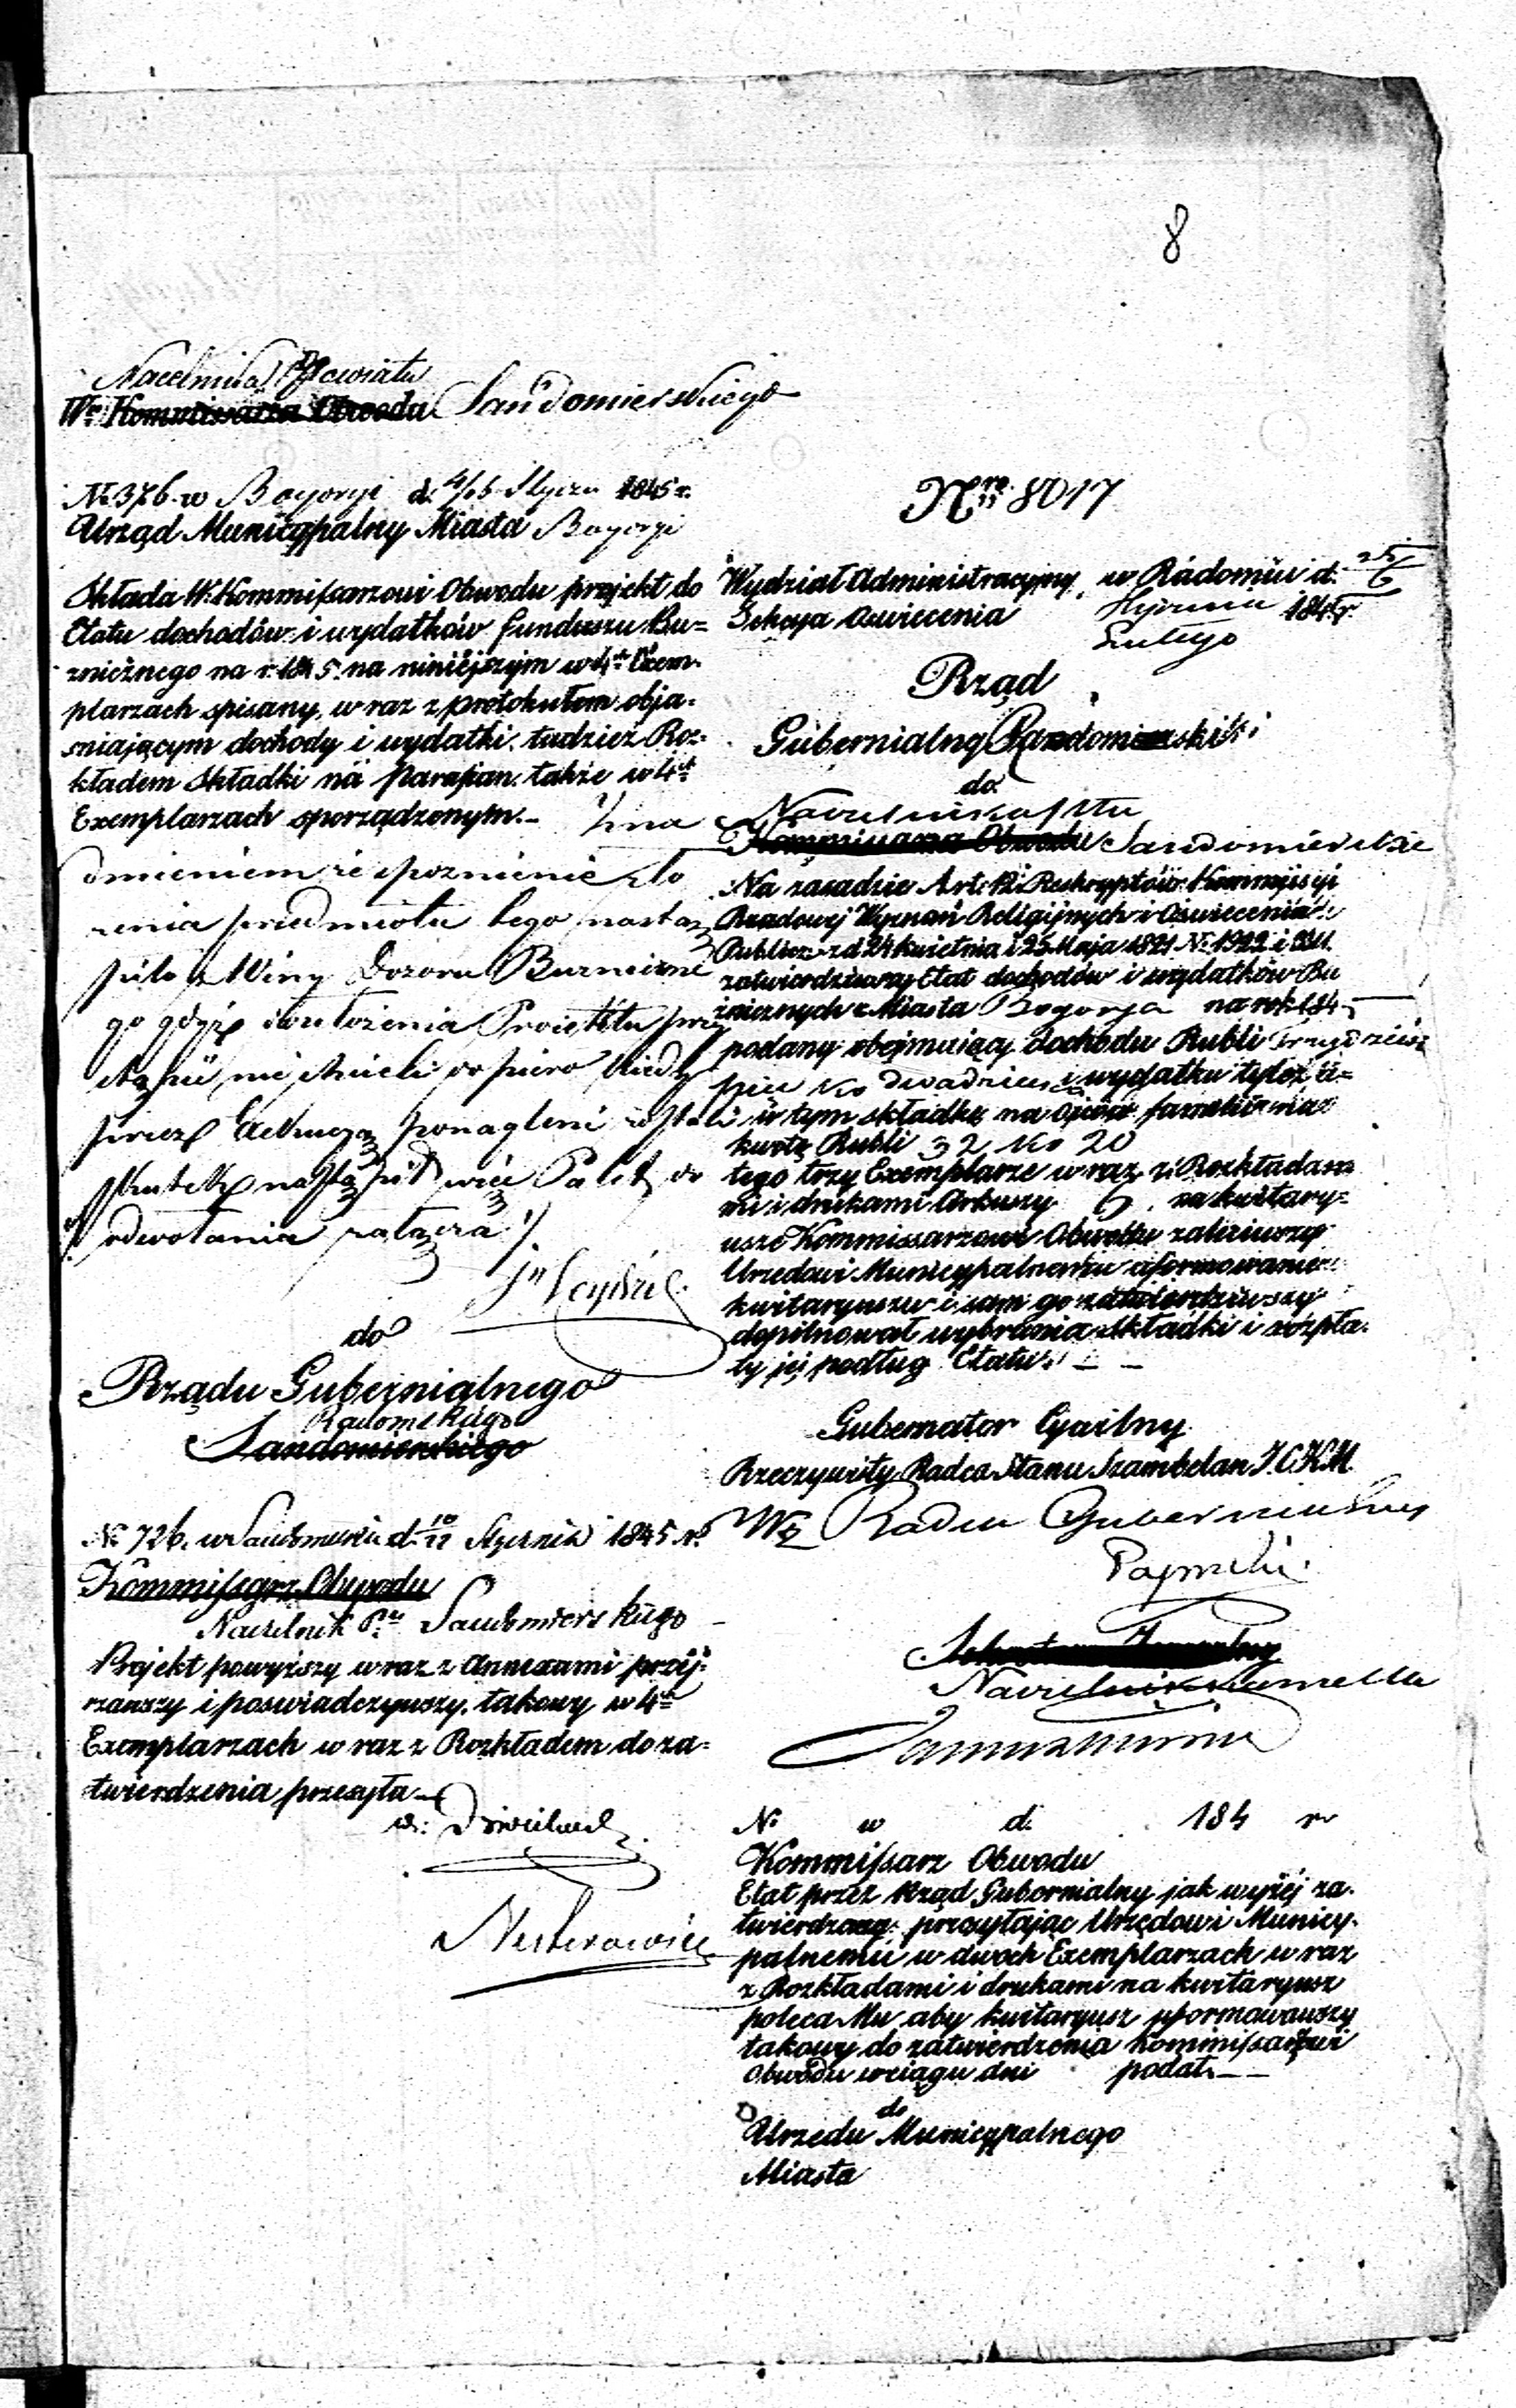 8
Naczelnika Powiatu
Wo Kommissarza Obwodu Sandomierskiego
No 376 w Bogoryi d. 4/16 Stycz. 1845 r.
Urząd Municypalny Miasta Bogoryi
Składa W. Kommissarzowi Obwodu projekt do
Etatu dochodów i wydatków funduszu Bu=
znicznego na r. 1845 na niniejszym w 4ch Exem-
plarzach spisany, w raz z protokułem obja-
sniającym dochody i wydatki, tudzież Roz-
kładem Składki na Parafian także w 4ch
Exemplarzach sporządzonym.
mieniem że spoznienie zło
zenia przedmiotu tego nastą
piło z Winy Dozoru Buzniczne
go gdyż do ułożenia Proiektu przy
stąpić nie chcieli do piero kiedy
przez Exekucyą ponagleni zostali
skutek nastąpił więc Palet do
odwołania załącza
do
Rządu Gubernialnego
Radomskiego
Sandomierskiego
No 726. w Sandomierzu d. 10/22 Stycznia 1845 r.
Kommissarz Obwodu
Naczelnik Ptu Sandomierskiego
Projekt powyższy w raz z Annexami przej-
rzawszy i poswiadczywszy, takowy w 4ch
Exemplarzach w raz z Rozkładem do za-
twierdzenia przesyła
Nesterowicz
Nro 8017
Wydział Administracyjny w Radomiu d. 25/6
Sekcya Oswiecenia Stycznia 1845 r.
Lutego
Rząd
Gubernialny Radomski
do
Naczelnika Ptu
Kommissarza Obwodu Sandomierskie
Na zasadzie Art: 12 Reskryptów Kommissyi
Rządowej Wyznań Religijnych i Oswiecenia
Publicz: z d 24 Kwietnia i 25 Maja 1821 No 1922 i
zatwierdziwszy Etat dochodów i wydatków Bu
znicznych z Miasta Bogorya na rok 184
podany obejmuiący dochodu Rubli Trzydziesci
pięć Ko dwadziescia i wydatku tyleż a
w tym składkę na
kwotę Rubli 32 Ko 20
tego trzy Exemplarze w raz z Rozkłada=
mi i drukami Arkuszy 6. na kwitary=
usze Kommissarzowi Obwodu zaleciwszy
Urzędowi Municypalnemu uformowanie
kwitaryuszu i sam go zatwierdziwszy
dopilnował wybrania Składki i wypła-
ty jej podług Etatu.
Gubernator Cywilny
Rzeczywisty Radca Stanu Szambelan J.C.K.M.
Wz Radca Gubernialny
Naczelnik Kancella
No w d. 184 r.
Kommissarz Obwodu
Etat przez Rząd Gubernialny jak wyżej za-
twierdzony, przesyłając Urzędowi Municy-
palnemu w dwoch Exemplarzach w raz
z Rozkładami i drukami na kwitaryusz
poleca Mu aby kwitaryusz uformowawszy
takowy do zatwierdzenia Kommissarzowi
Obwodu w ciągu dni podał.
do
Urzędu Municypalnego
Miasta